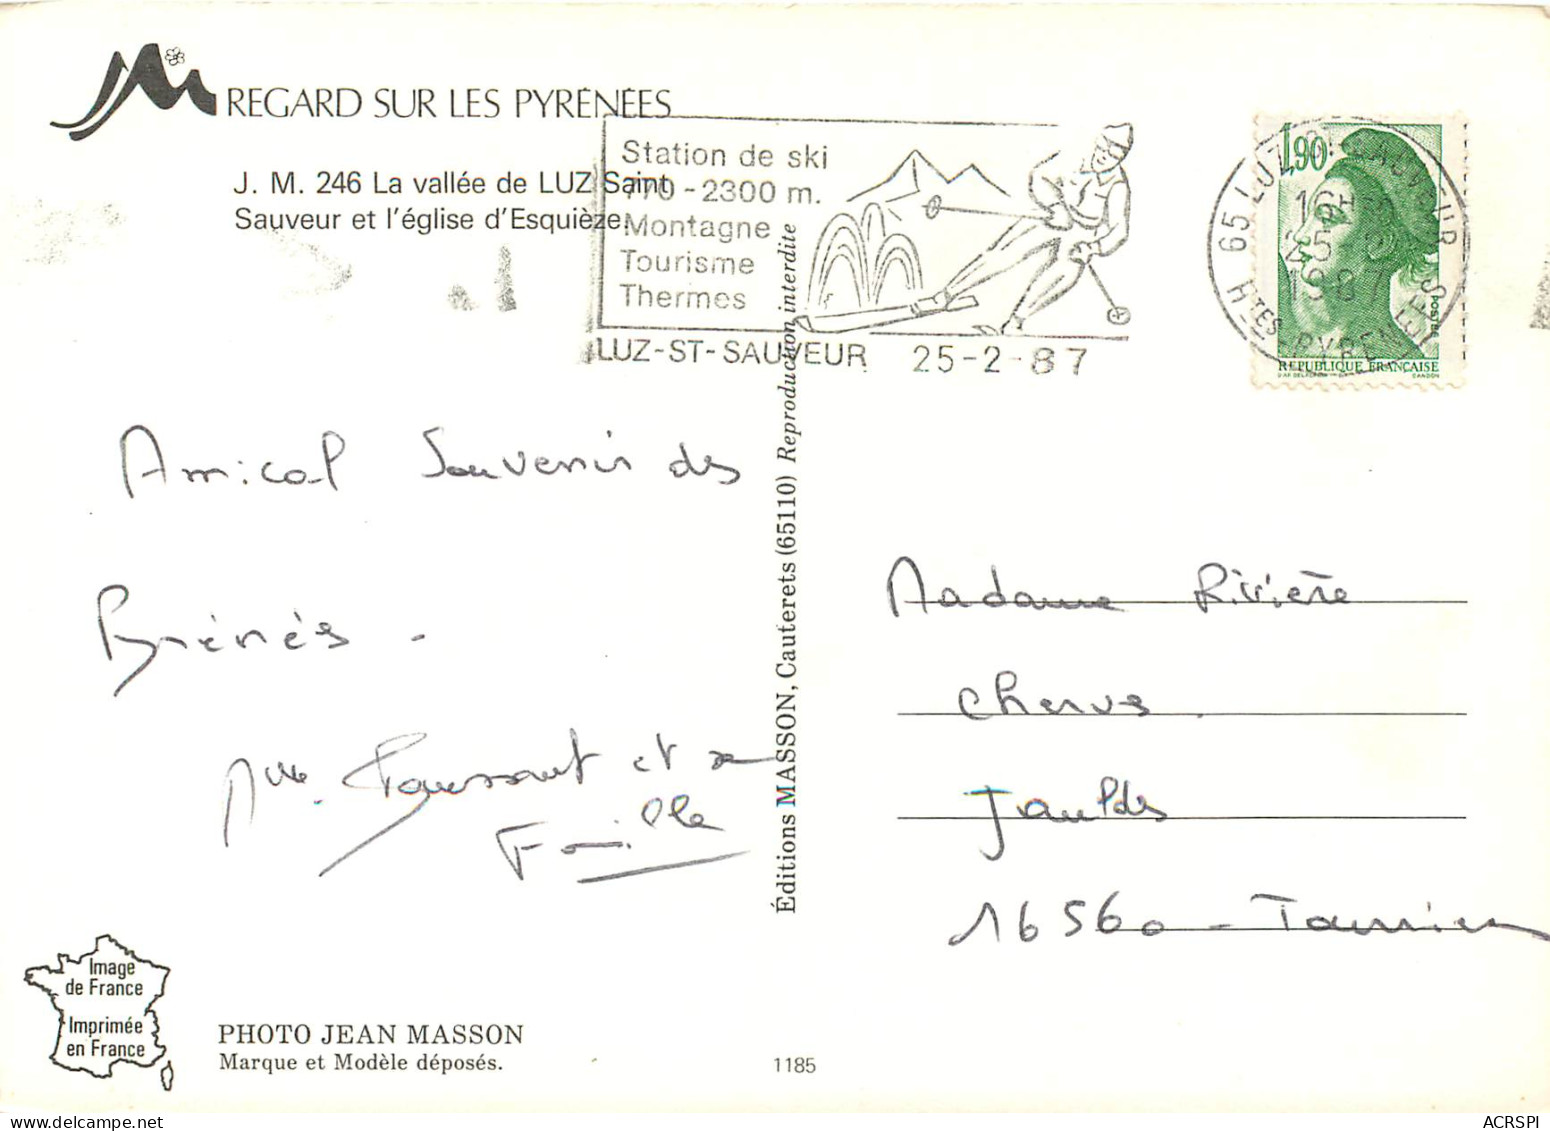 REGARD SUR LES PYRÉNÉES
J. M. 246 La vallée de LUZ Saint
Sauveur et l'église d'Esquièze.
Station de ski
770-2300 m.
Montagne
Tourisme
Thermes
LUZ-ST-SAUVEUR 25-2-87
1,90
65 LUZ ST SAUVEUR
16H
25
1987
HTES PYRENEES
POSTES
RÉPUBLIQUE FRANÇAISE
Amical Souvenir des
Pyrénés.
et sa
Famille
Éditions MASSON, Cauterets (65110) Reproduction interdite
Madame Rivière
Cherves
Jauldes
16560 - Tourriers
Image
de France
Imprimée
en France
PHOTO JEAN MASSON
Marque et Modèle déposés.
1185
ACRSPI